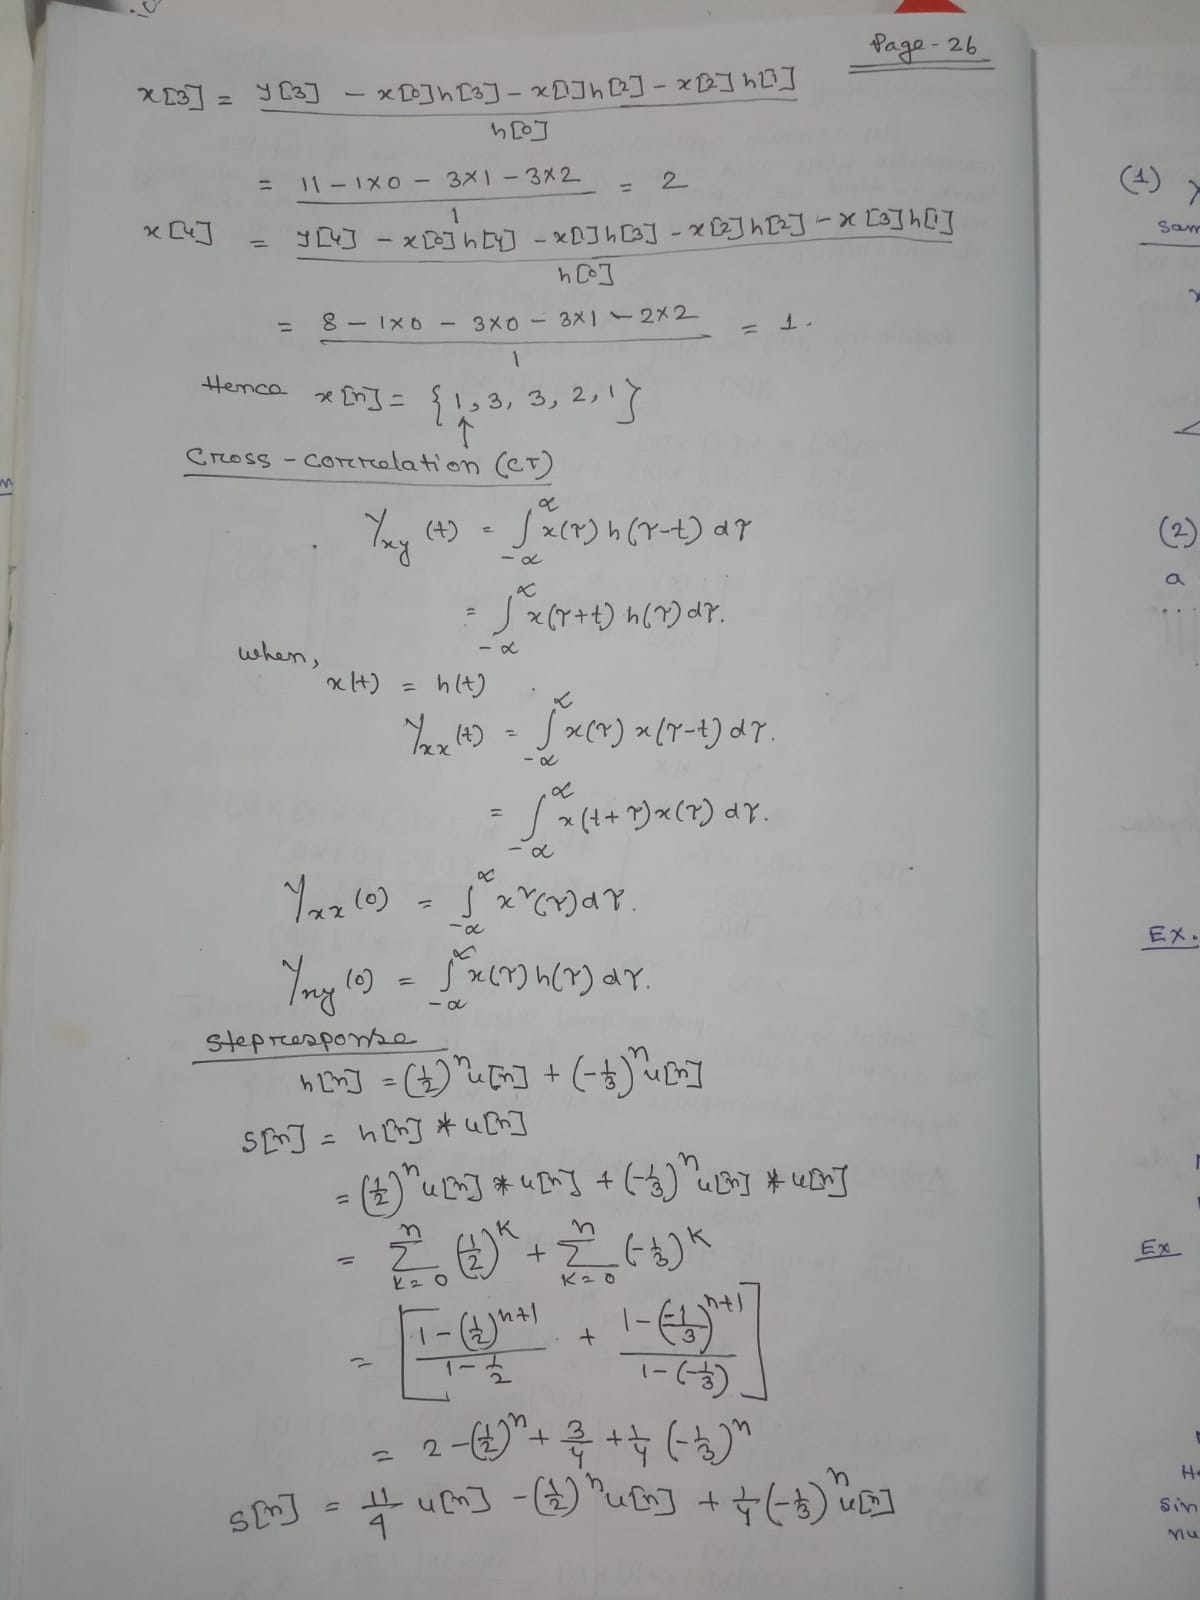 Page-26
x[3] = y[3] - x[0]h[3] - x[1]h[2] - x[2]h[1] / h[0]
= 11 - 1×0 - 3×1 - 3×2 / 1 = 2
x[4] = y[4] - x[0]h[4] - x[1]h[3] - x[2]h[2] - x[3]h[1] / h[0]
= 8 - 1×0 - 3×0 - 3×1 - 2×2 / 1 = 1.
Hence x[n] = {1, 3, 3, 2, 1}
↑
Cross-correlation (CT)
γxy(t) = ∫_{-∝}^{∝} x(τ) h(τ-t) dτ
= ∫_{-∝}^{∝} x(τ+t) h(τ) dτ.
when,
x(t) = h(t)
γxx(t) = ∫_{-∝}^{∝} x(τ) x(τ-t) dτ.
= ∫_{-∝}^{∝} x(t+τ) x(τ) dτ.
γxx(0) = ∫_{-∝}^{∝} x²(τ) dτ.
γxy(0) = ∫_{-∝}^{∝} x(τ) h(τ) dτ.
Step response
h[n] = (1/2)^n u[n] + (-1/3)^n u[n]
s[n] = h[n] * u[n]
= (1/2)^n u[n] * u[n] + (-1/3)^n u[n] * u[n]
= Σ_{k=0}^{n} (1/2)^k + Σ_{k=0}^{n} (-1/3)^k
= [1-(1/2)^{n+1} / 1-1/2 + 1-(-1/3)^{n+1} / 1-(-1/3)]
= 2 - (1/2)^n + 3/4 + 1/4 (-1/3)^n
s[n] = 11/4 u[n] - (1/2)^n u[n] + 1/4 (-1/3)^n u[n]
(1)
sam
(2)
a
Ex.
Ex
sin
nu